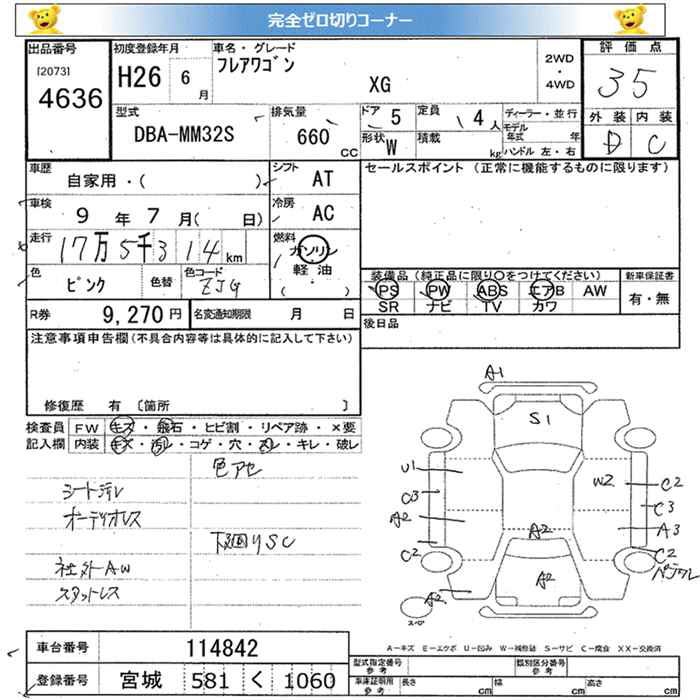 完全ゼロ切りコーナー
出品番号
[2073]
4636
初度登録年月
H26 6 月
車名・グレード
フレアワゴン
XG
2WD
・
4WD
評価点
3 5
外装 内装
D C
型式
DBA-MM32S
排気量
660 CC
ドア 5
形状 W
定員 4 人
積載 kg
ディーラー・並行
モデル年式 年
ハンドル 左・右
車歴
自家用・( )
シフト AT
車検
9 年 7 月( 日)
冷房 AC
走行
17万5千314 km
燃料
ガソリン
軽油
( )
色 ピンク
色替
色コード ZJG
R券 9,270 円
名変通知期限 月 日
セールスポイント(正常に機能するものに限ります)
装備品(純正品に限り○をつけてください)
PS PW ABS エアB AW
SR ナビ TV カワ
新車保証書
有・無
後日品
注意事項申告欄(不具合内容等は具体的に記入して下さい)
修復歴 有 〔箇所 〕
検査員記入欄
FW キズ・飛石・ヒビ割・リペア跡・×要
内装 キズ・汚レ・コゲ・穴・スレ・キレ・破レ
色アセ
シート汚レ
オーディオレス
下廻りSC
社外AW
スタットレス
A1
S1
U1
W2
C2
C3
C3
A2
A3
A2
C2
C2
A2
A2
スペア
A-キズ E-エクボ U-凹み W-補修跡 S-サビ C-腐食 XX-交換済
車台番号 114842
登録番号 宮城 581 く 1060
型式指定番号 参考
類別区分番号 参考
車庫証明用 参考
長さ cm
幅 cm
高さ cm